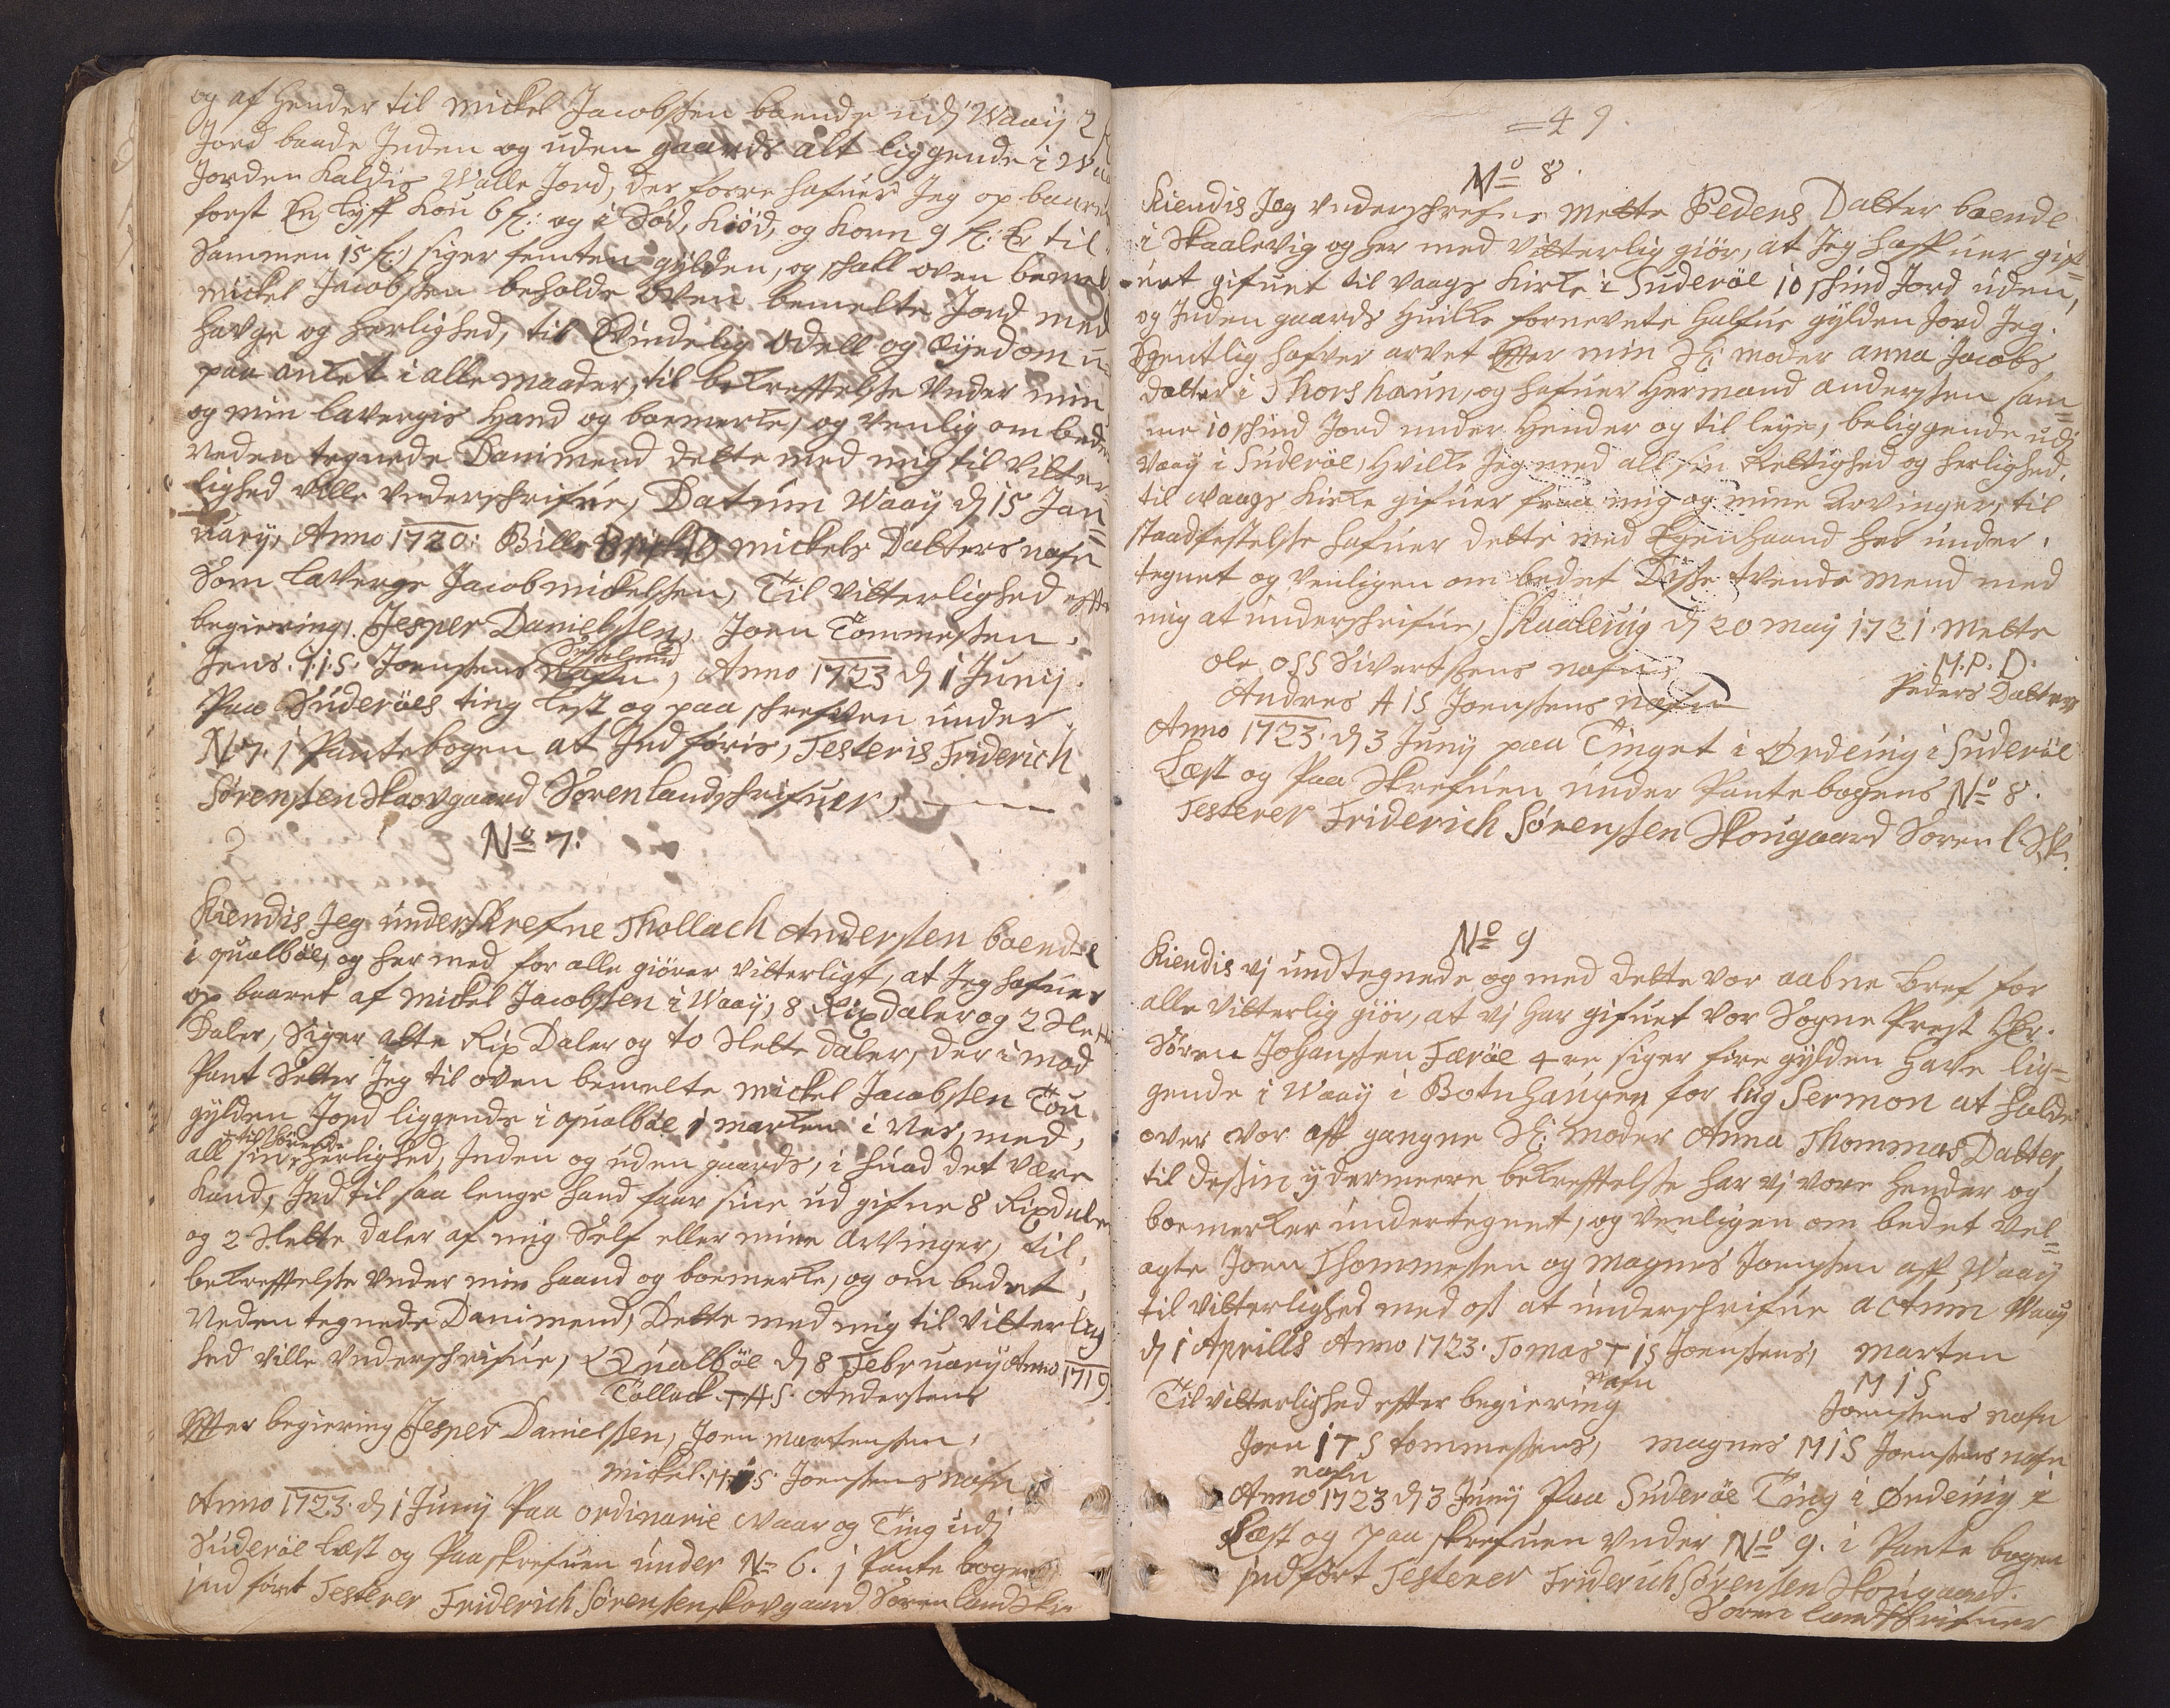 og af hender til Mickel Jacobssen boende udj Waaij 2
Jord baade Inden og uden gaards alt liggende i
Jorden Kaldis Walle Jord, der forre hafuer Jeg op baaret
forst En Tyff Kou 6 f: og i Sød, Kiød, og Korn 9 f: Er til
Sammen 15 f: siger femten gylden, og skall oven bemelt
Mickel Jacobssen beholde oven bemelte Jord med
Havge og herlighed, til Evindelig Odell og Eyedom u-
paa anket i alle maader, til bekrefftelse Under min
og min lavergis Hand og boemerke, og venlig om bede
Neden tegnede Danimend dette med mig til vitter-
lighed ville Underschrifue, Datum Waaij d 15 Jan=
uarij, Anno 1720: Bille Mickels Datters nafn
Som laverge Jacob Mickelssen, Til vitterlighed effter
begiering, Jesper Danielssen, Joen Tommessen,
Jens. I.I.S. Joenssens nafn, Anno 1723 d 1 Junij.
Paa Suderøes ting lest og paa schrefven under
N 7. i Pantebogen at Indføris, Testeris Friderich
Sørenssen Skovgaard Soren landschrifuer,
No 7:
Kiendis Jeg underskrefne Thollach Anderssen boende
i qualbøe, og her med for alle giører vitterligt, at Jeg hafuer
op baaret af Mickel Jacobssen i Waaij, 8 Rixdaler og 2 Slette
Daler, Siger otte Rix Daler og to Slette daler, der i mod
Pant Setter Jeg til oven bemelte Mickel Jacobssen Tou
gylden Jord liggende i qualbøe i marken i Nes, med,
tilhørende
all sin herlighed, Inden og uden gaards, i huad det være
Kand, Ind til saa lenge hand faar sine ud gifne 8 Rixdaler
og 2 Slette daler af mig Self eller mine Arvinger, til
bekrefftelse Under min haand og boemerke, og om bedet
Neden tegnede Danimend, Dette med mig til vitterlig
hed ville Underschrifue, Qualbøe d 8 Februarij Anno 1719
Tollack. T A S. Anderssens
Effter begiering Jesper Danielssen, Joen Martenssen,
Mickel. M I S. Joenssens nafn
Anno 1723. d 1 Junij Paa ordinarie Vaar og Ting udj
Suderøe læst og Paaskrefuen under No 6. j Pante bogen
ind ført Testerer Friderich Sørenssen Skovgaard Soren land Skr
=49.
No 8.
Kiendis Jeg Underschrefne Mette Peders Datter boende
i Skaalevig og her med vitterlig giør, at Jeg haffuer gif=
uet gifuet til Vaags Kirke i Suderøe 10 skind Jord uden,
og Inden gaards huilke fornevnte halfue gylden Jord Jeg.
Egentlig hafver arvet Effter min Sl: moder Anna Jacobs
Datter i Thorshaun, og hafuer Hermand Anderssen sam=
me 10 skind Jord under hender og til leye, beliggende udj
Vaaij i Suderøe, Hvilke Jeg med all sin Rettighed og herlighed.
til Waags Kirke gifuer fraa mig og mine Arvinger, til
staadfestelse hafuer dette med Egenhaand her under.
tegnet og venligen om bedet Disse tvende mend med
mig at underschrifue, Skaalevig d 20 Maij 1721. Mette
M.P.D.
Peders Datter
Ole OSS Sivertssens nafn
Andres A I S Joenssens nafn
Anno 1723. d 3 Junij paa Tinget i Ørdevig i Suderøe
Læst og Paa Skrefuen under Pantebogens No 8.
Testerer Friderich Sørenssen Skougaard Soren l. Sk:
No 9
Kiendis vj undtegnede og med dette vor aabne bref for
alle vitterlig giør, at vj har gifuet vor Sogne Prest Hr.
Søren Johanssen Færøe 4re, siger fire gylden Have lig=
gende i Waaij i Botnhaugen for liig Sermon at holde
over vor aff gangne Sl: Moder Anna Thommas Datter,
til dessin ydermeere bekrefftelse har vj vore hender og
boemerker undertegnet, og venligen om bedet Vel=
agte Joen Thommessen og Magnes Joenssen aff Waaij
til vitterlighed med oss at underschrifue Actum Waaij
d 1 Aprills Anno 1723. Tomas T I S Joenssens, Marten
nafn M I S
Til vitterlighed effter begiering Joenssens nafn
Joen I T S tommessens, Magnes M I S Joenssens nafn
nafn
Anno 1723 d 3 Junij Paa Suderøe Ting i Ørdevig i
Læst og paa skrefuen under No 9. i Pante bogen
indført Testerer Friderich Sørenssen Skougaard.
Soren landSkrifuer